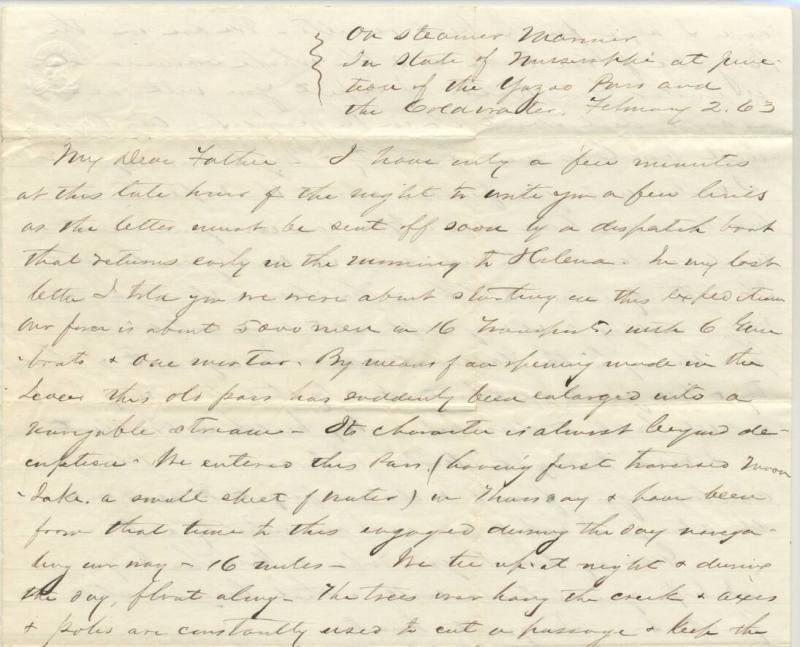 On Steamer Mariner
In State of Mississippi at junc-
tion of the Yazoo Pass and
the Coldwater. February 2. 63
My Dear Father - I have only a few minutes
at this late hour of the night to write you a few lines
as the letter must be sent off soon by a dispatch boat
that returns early in the morning to Helena. In my last
letter I told you we were about starting on this expedition
Our force is about 5000 men on 16 Transports, with 6 Gun
-boats & one mortar. By means of an opening made in the
Levee this old pass has suddenly been enlarged into a
navigable stream - Its character is almost beyond de-
scription. We entered this Pass, (having first traversed Moon
-Lake. a small sheet of water) on Thursday & have been
from that time to this engaged during the day naviga-
ting our way - 16 miles - We tie up at night & during
the day, float along - The trees over hang the creek & axes
& poles are constantly used to cut a passage & keep the